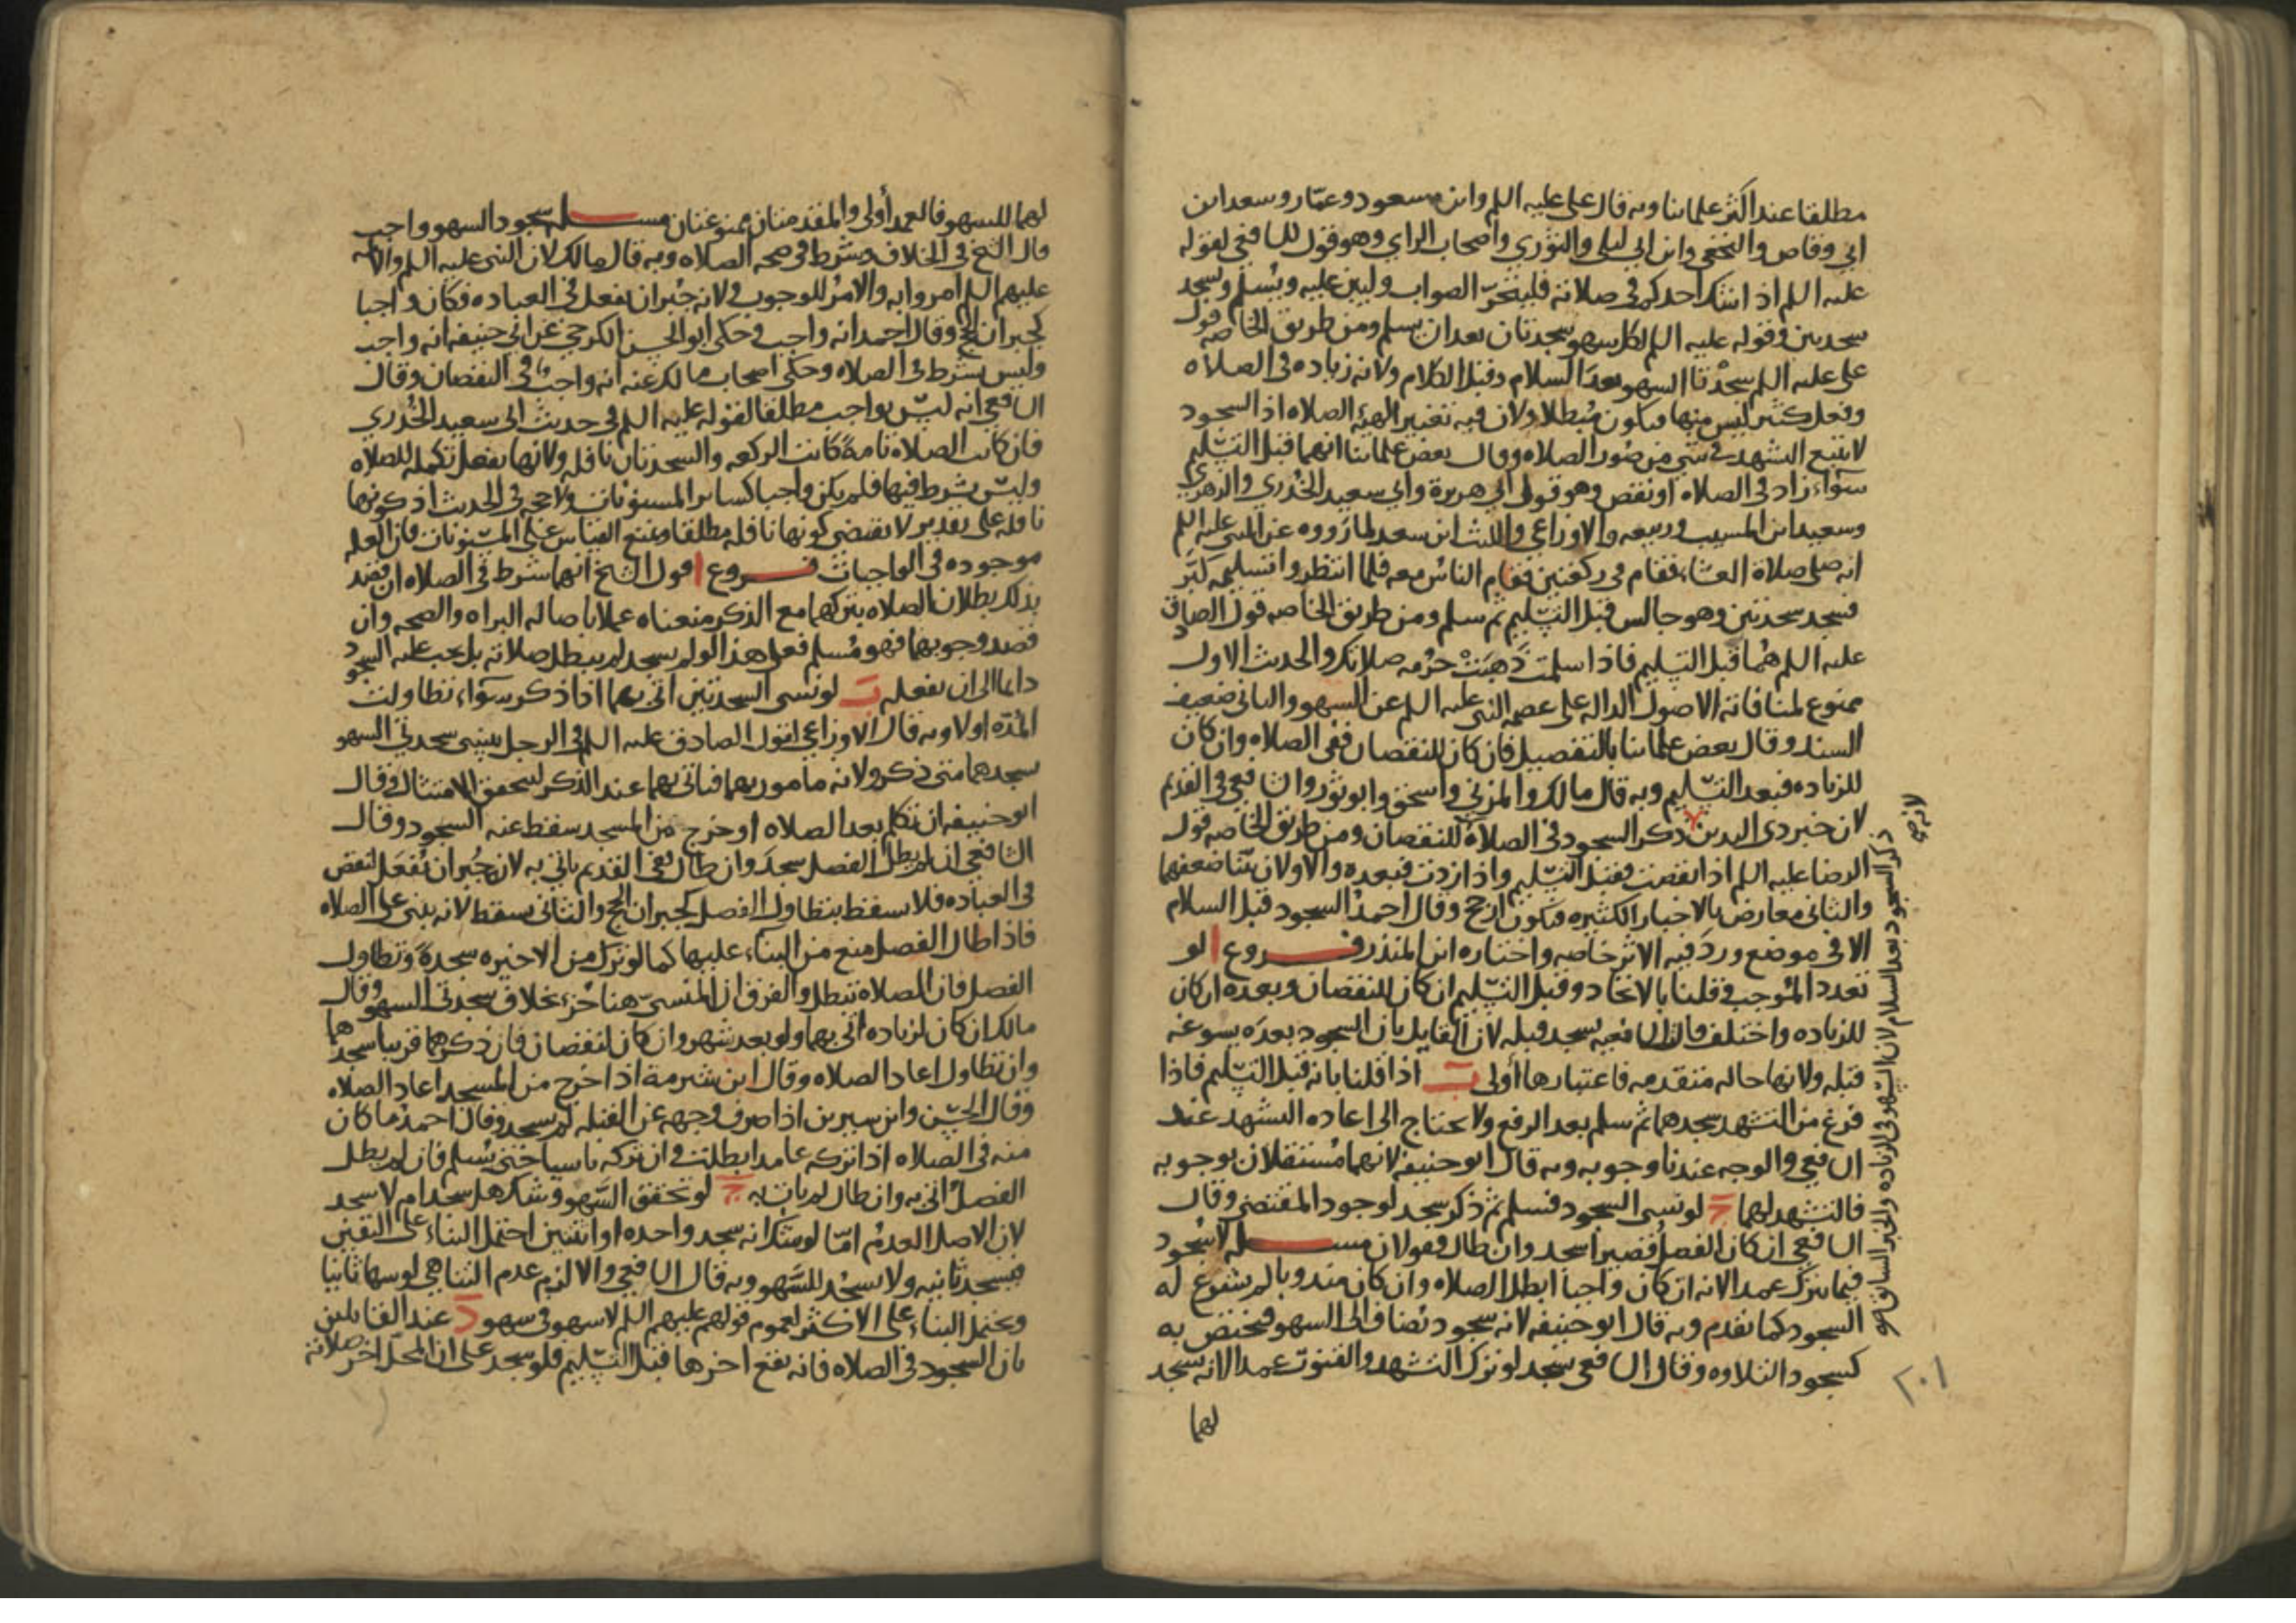 مطلقا عند اكثر علمائنا وبه قال على عليه السلم وابن مسعود وعمّار وسعد ابن
ابى وقاص والنخعى وابن ابى ليلى والثوري واصحاب الراي وهو قول للشافعى لقوله
عليه السلم اذا شك احدكم فى صلاته فليتحرّ الصواب وليبن عليه ويسلم ويسجد
سجدتين وقوله عليه السلم لكل سهو سجدتان بعد ان يسلم ومن طريق الخاصه قول
على عليه السلم سجدتا السهو بعد السلام وقبل الكلام ولانه زياده فى الصلاه
وفعل كثير ليس منها فيكون مبطلا ولان فيه تغيير الهيئه الصلاه اذ السجود
لا يتبع التشهد فى شي من صور الصلاه وقال بعض علمائنا انهما قبل التسليم
سوآء زاد فى الصلاه او نقص وهو قول ابى هريرة وابى سعيد الخدري والزهري
وسعيد ابن المسيب وربيعه والاوزاعى والليث ابن سعد لما رووه عن النبى عليه السلم
انه صلى صلاة العشاء فقام فى ركعتين فقام الناس معه فلما انتظروا تسليمه كبّر
فسجد سجدتين وهو جالس قبل التسليم ثم سلم ومن طريق الخاصه قول الصادق
عليه السلم هما قبل التسليم فاذا سلمت ذهبت حرمه صلاتك والحديث الاول
ممنوع لمنافاته الاصول الداله على عصمه النبى عليه السلم عن السهو والثانى ضعيف
السند وقال بعض علمائنا بالتفصيل فان كان للنقصان ففى الصلاه وان كان
للزياده فبعد التسليم وبه قال مالك والمزنى واسحق وابو ثور والشافعى فى القديم
لان خبر ذى اليدين ذكر السجود فى الصلاة للنقصان ومن طريق الخاصه قول
الرضا عليه السلم اذا نقصت فقبل التسليم واذا زدت فبعده والاولان بيّنا ضعفهما
والثانى معارض بالاخبار الكثيره فيكون ارجح وقال احمد السجود قبل السلام
الا فى موضع ورد فيه الاثر خاصه واختاره ابن المنذر فروع ا لو
تعدد الموجب وقلنا بالاتحاد وقبل التسليم ان كان للنقصان وبعده ان كان
للزياده واختلف قال الشافعيه يسجد قبله لان القايل بان السجود بعده يسوغه
قبله ولانها حاله متقدمه فاعتبارها أولى ب اذا قلنا بانه قبل التسليم فاذا
فرغ من التشهد سجدهما ثم سلم بعد الرفع ولا يحتاج الى اعاده التشهد عند
الشافعى والوجه عندنا وجوبه وبه قال ابو حنيفه لانهما مستقلان بوجوبه
فالتشهد لهما ج لو نسى السجود فسلم ثم ذكر سجد لوجود المقتضى وقال
الشافعى ان كان الفصل قصيرا سجد وان طال فقولان مسله لا سجود
فيما يترك عمدا لانه ان كان واجبا ابطل الصلاه وان كان مندوبا لم يشرع له
السجود كما تقدم وبه قال ابو حنيفه لانه سجود يضاف الى السهو فيختص به
كسجود التلاوه وقال الشافعى يسجد لو ترك التشهد والقنوت عمدا لانه يسجد
لهما
لانه صح
ذكر السجود بعد السلام لان السهو فى الزياده والخبر السابق هو
٢٠١
لهما للسهو فالعمد أولى والمقدمتان ممنوعتان مسله سجود السهو واجب
قال الشيخ فى الخلاف وشرط فى صحه الصلاه وبه قال مالك لان النبى عليه السلم والائمه
عليهم السلم امروا به والامر للوجوب ولانه جبران يفعل فى العباده فكان واجبا
كجبران الحج وقال احمد انه واجب وحكى ابو الحسن الكرخى عن ابى حنيفه انه واجب
وليس بشرط فى الصلاه وحكى اصحاب مالك عنه انه واجب فى النقصان وقال
الشافعى انه ليس بواجب مطلقا لقوله عليه السلم فى حديث ابى سعيد الخدري
فان كانت الصلاه تامةً كانت الركعه والسجدتان نافله ولانها يفعل تكمله للصلاه
وليس بشرط فيها فلم يكن واجبا كسائر المسنونات ولا حجه فى الحديث اذ كونها
نافله على تقدير لا يقتضى كونها نافله مطلقا ونمنع القياس على المسنونات فان العله
موجوده فى الواجبات فروع ا قول الشيخ انهما شرط فى الصلاه ان قصد
بذلك بطلان الصلاه بتركهما مع الذكر منعناه عملا باصاله البراه والصحه وان
قصد وجوبهما فهو مسلم فعلى هذا لو لم يسجد لم يبطل صلاته بل يجب عليه السجود
دايما الى ان يفعله ب لو نسى السجدتين اتى بهما اذا ذكر سوآء تطاولت
المدّه او لا وبه قال الاوزاعى لقول الصادق عليه السلم فى الرجل ينسى سجدتى السهو
يسجدهما متى ذكر ولانه مامور بهما فياتى بهما عند الذكر ليحقق الامتثال وقال
ابو حنيفه ان تكلم بعد الصلاه او خرج من المسجد سقط عنه السجود وقال
الشافعى ان لم يطل الفصل سجد وان طال ففى القديم ياتى به لانه جبران يفعل لنقص
فى العباده فلا يسقط بتطاول الفصل كجبران الحج والثانى يسقط لانه يبنى على الصلاه
فاذا طال الفصل منع من البناء عليها كما لو ترك من الاخيره سجدةً وتطاول
الفصل فان الصلاه تبطل والفرق ان المنسىّ هنا جزء بخلاف سجدتى السهو وقال
مالك ان كان لزياده اتى بهما ولو بعد شهر وان كان لنقصان فان ذكرهما قريبا سجدهما
وان تطاول اعاد الصلاه وقال ابن شبرمة اذا خرج من المسجد اعاد الصلاه
وقال الحسن وابن سيرين اذا صرف وجهه عن القبله لم يسجد وقال احمد ما كان
منه فى الصلاه اذا تركه عامدا بطلت وان تركه ناسيا حتى يسلم فان لم يطل
الفصل اتى به وان طال لم يات به ج لو تحقق السهو وشك هل سجد ام لا سجد
لان الاصل العدم امّا لو شك انه سجد واحده او اثنتين احتمل البناء على اليقين
فيسجد ثانيه ولا يسجد للسهو وبه قال الشافعى والا لزم عدم التناهى لو سها ثانيا
ويحتمل البناء على الاكثر لعموم قولهم عليهم السلم لا سهو فى سهو د عند القايلين
بان السجود فى الصلاه فانه يقع اخرها قبل التسليم فلو سجد على ان المحل اخر صلاته